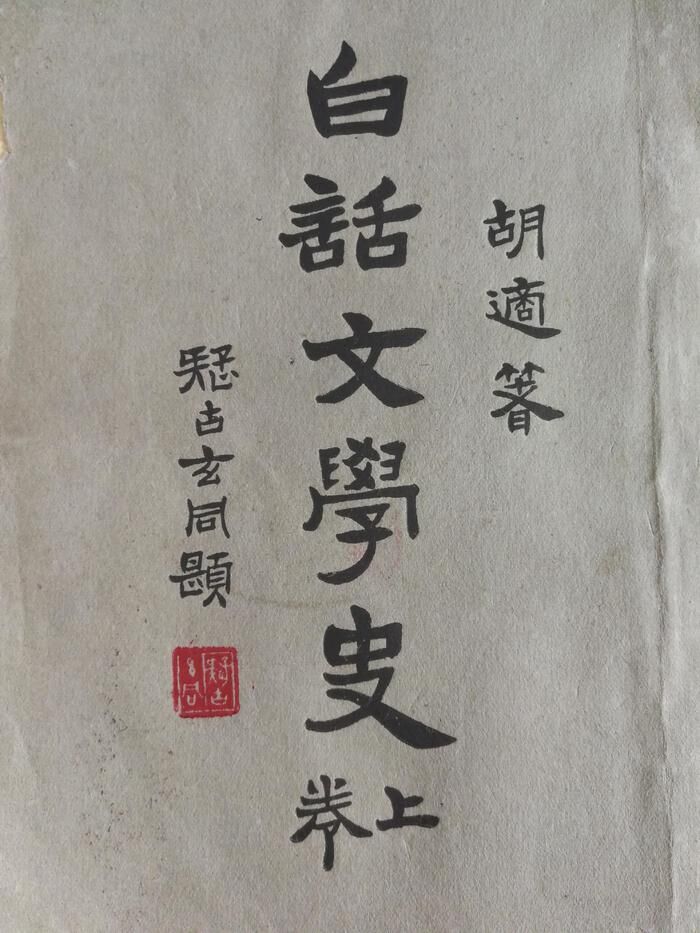 胡適箸
白話文學史
上卷
疑古玄同題
疑古玄同